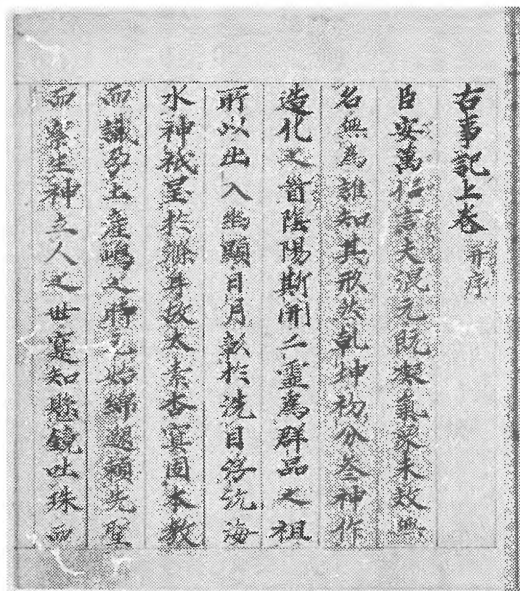 古事記上巻 并序
臣安萬侶言夫混元既凝氣象未效無
名無為誰知其形然乾坤初分叄神作
造化之首陰陽斯開二靈為群品之祖
所以出入幽顯日月彰於洗目浮沉海
水神祇呈於滌身故太素杳冥因本教
而識孕土産嶋之時元始綿邈頼先聖
而察生神立人之世寔知懸鏡吐珠而